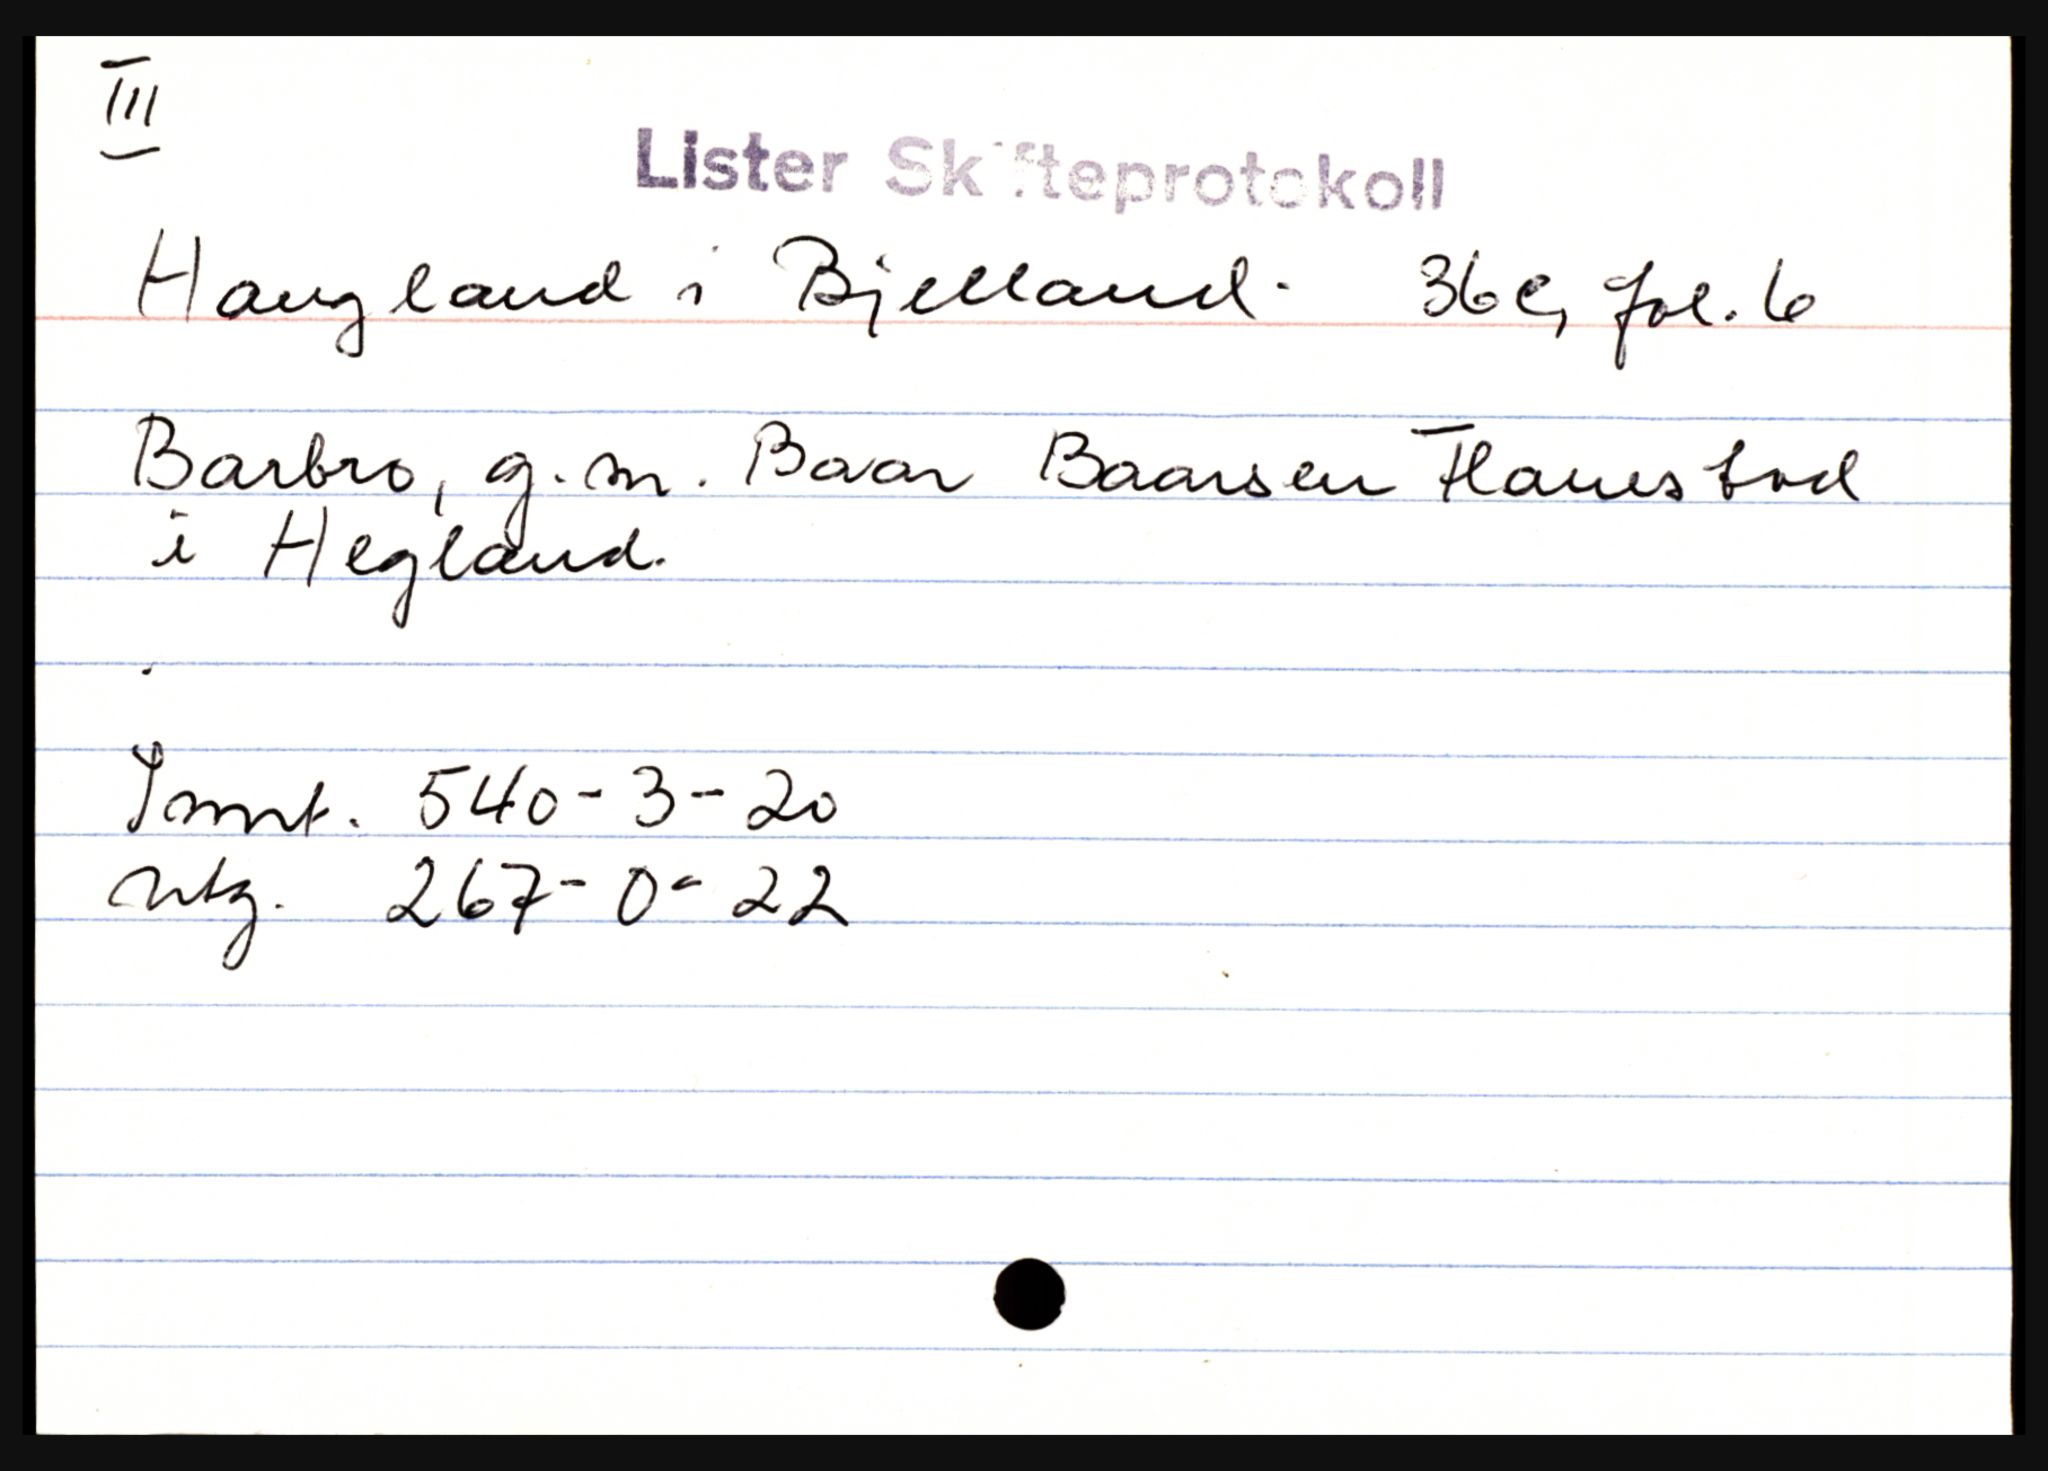 III
Lister Skifteprotokoll
Haugland i Bjelland. 36c, fol. 6
Barbro, g.m. Baar Baarsen Flanestad
i Hegland.
Innt. 540-3-20
utg. 267-0-22